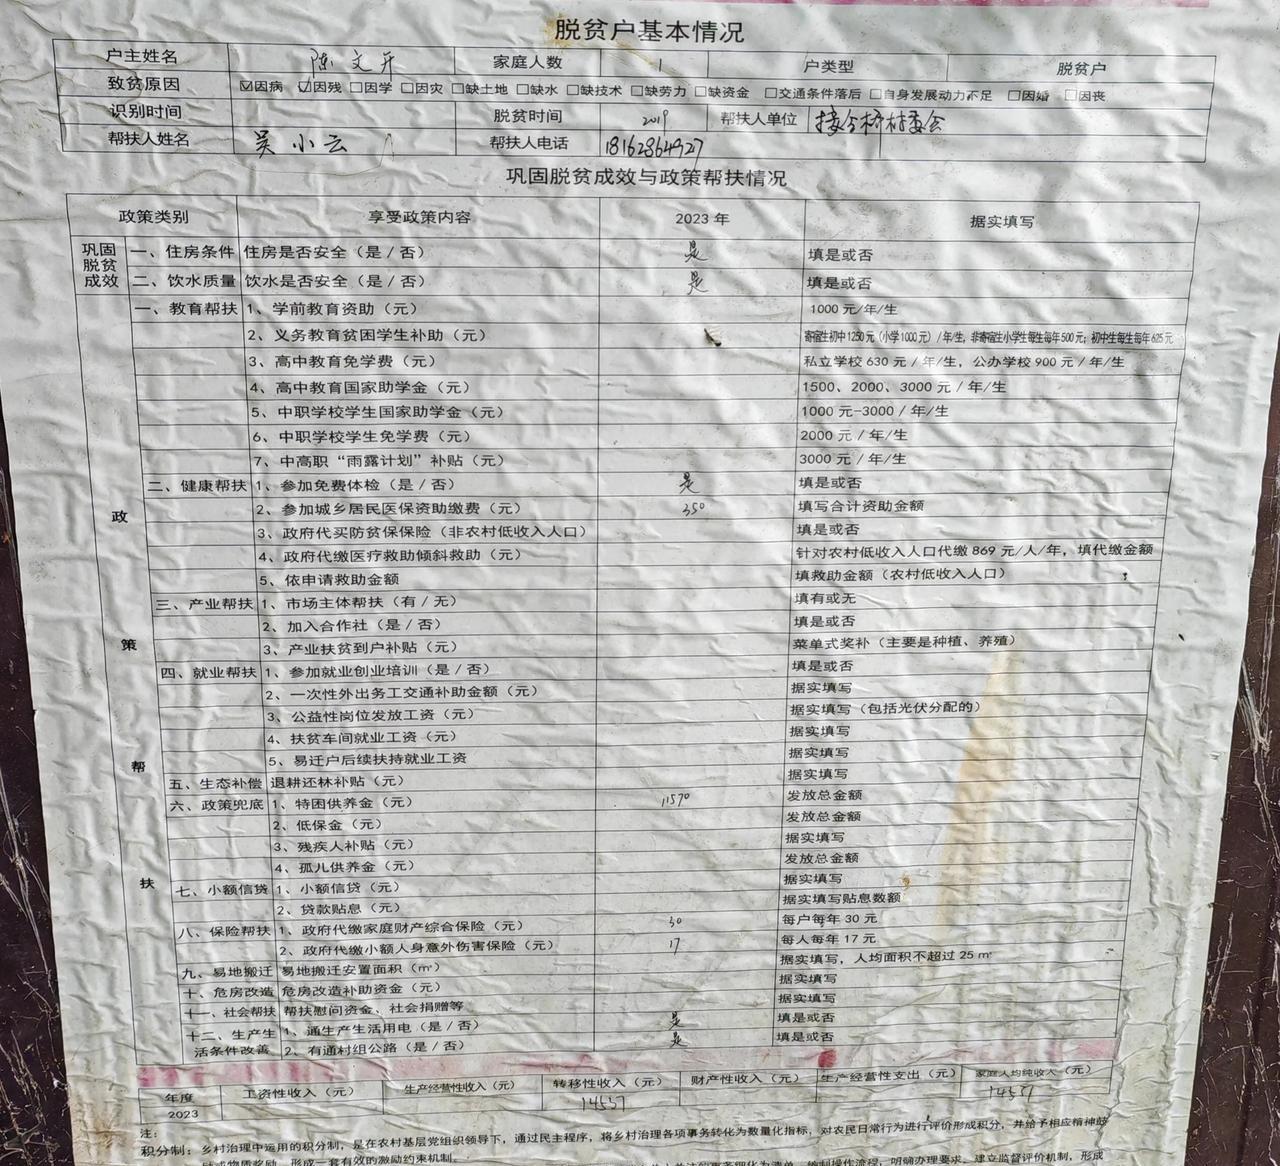 脱贫户基本情况
户主姓名 陈文开 家庭人数 1 户类型 脱贫户
致贫原因 ☑因病 ☑因残 □因学 □因灾 □缺土地 □缺水 □缺技术 □缺劳力 □缺资金 □交通条件落后 □自身发展动力不足 □因婚 □因丧
识别时间 脱贫时间 2019 帮扶人单位 接令桥村委会
帮扶人姓名 吴小云 帮扶人电话 18162864927
巩固脱贫成效与政策帮扶情况
政策类别 享受政策内容 2023年 据实填写
巩固脱贫成效 一、住房条件 住房是否安全（是/否） 是 填是或否
二、饮水质量 饮水是否安全（是/否） 是 填是或否
政策帮扶
一、教育帮扶 1、学前教育资助（元） 1000元/年/生
2、义务教育贫困学生补助（元） 寄宿生初中1250元（小学1000元）/年/生，非寄宿生小学生每生每年500元；初中生每生每年625元
3、高中教育免学费（元） 私立学校630元/年/生，公办学校900元/年/生
4、高中教育国家助学金（元） 1500、2000、3000元/年/生
5、中职学校学生国家助学金（元） 1000元-3000/年/生
6、中职学校学生免学费（元） 2000元/年/生
7、中高职“雨露计划”补贴（元） 3000元/年/生
二、健康帮扶 1、参加免费体检（是/否） 是 填是或否
2、参加城乡居民医保资助缴费（元） 350 填写合计资助金额
3、政府代买防贫保保险（非农村低收入人口） 填是或否
4、政府代缴医疗救助倾斜救助（元） 针对农村低收入人口代缴869元/人/年，填代缴金额
5、依申请救助金额 填救助金额（农村低收入人口）
三、产业帮扶 1、市场主体帮扶（有/无） 填有或无
2、加入合作社（是/否） 填是或否
3、产业扶贫到户补贴（元） 菜单式奖补（主要是种植、养殖）
四、就业帮扶 1、参加就业创业培训（是/否） 填是或否
2、一次性外出务工交通补助金额（元） 据实填写
3、公益性岗位发放工资（元） 据实填写（包括光伏分配的）
4、扶贫车间就业工资（元） 据实填写
5、易迁户后续扶持就业工资 据实填写
五、生态补偿 退耕还林补贴（元） 据实填写
六、政策兜底 1、特困供养金（元） 11570 发放总金额
2、低保金（元） 发放总金额
3、残疾人补贴（元） 据实填写
4、孤儿供养金（元） 发放总金额
七、小额信贷 1、小额信贷（元） 据实填写
2、贷款贴息（元） 据实填写贴息数额
八、保险帮扶 1、政府代缴家庭财产综合保险（元） 30 每户每年30元
2、政府代缴小额人身意外伤害保险（元） 17 每人每年17元
九、易地搬迁 易地搬迁安置面积（㎡） 据实填写，人均面积不超过25㎡
十、危房改造 危房改造补助资金（元） 据实填写
十一、社会帮扶 帮扶慰问资金、社会捐赠等 据实填写
十二、生产生活条件改善 1、通生产生活用电（是/否） 是 填是或否
2、有通村组公路（是/否） 是 填是或否
年度 工资性收入（元） 生产经营性收入（元） 转移性收入（元） 财产性收入（元） 生产经营性支出（元） 家庭人均纯收入（元）
2023 14557 14557
注：
积分制：乡村治理中运用的积分制，是在农村基层党组织领导下，通过民主程序，将乡村治理各项事务转化为数量化指标，对农民日常行为进行评价形成积分，并给予相应精神鼓
励或物质奖励，形成一套有效的激励约束机制。